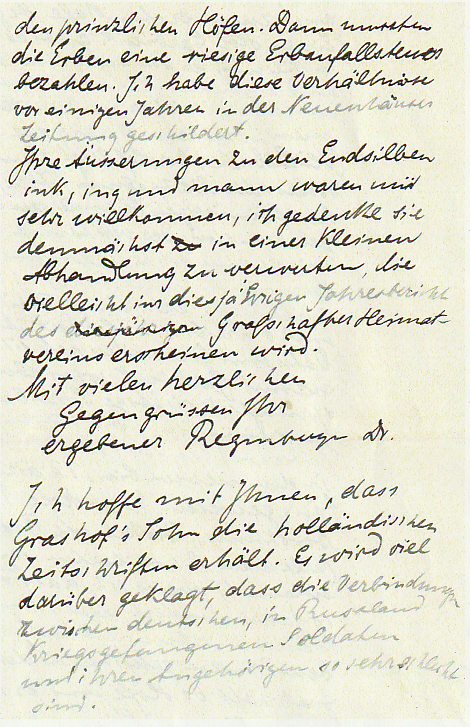 den prinzlichen Höfen. Dann mussten
die Erben eine riesige Erbanfallsteuer
bezahlen. Ich habe diese Verhältnisse
vor einigen Jahren in der Neuenhäuser
Zeitung geschildert.
Ihre Äusserungen zu den Endsilben
ink, ing und mann waren mir
sehr willkommen, ich gedenke sie
demnächst zu in einer kleinen
Abhandlung zu verwerten, die
vielleicht im diesjährigen Jahresbericht
des Grafschafter Heimat-
vereins erscheinen wird.
Mit vielen herzlichen
Gegengrüssen Ihr
ergebener Regenburgn Dr.
Ich hoffe mit Ihnen, dass
Grashof's Sohn die holländischen
Zeitschriften erhält. Es wird viel
darüber geklagt, dass die Verbindungen
zwischen deutschen, in Russland
Kriegsgefangenen Soldaten
und ihren Angehörigen so sehr schlecht
sind.